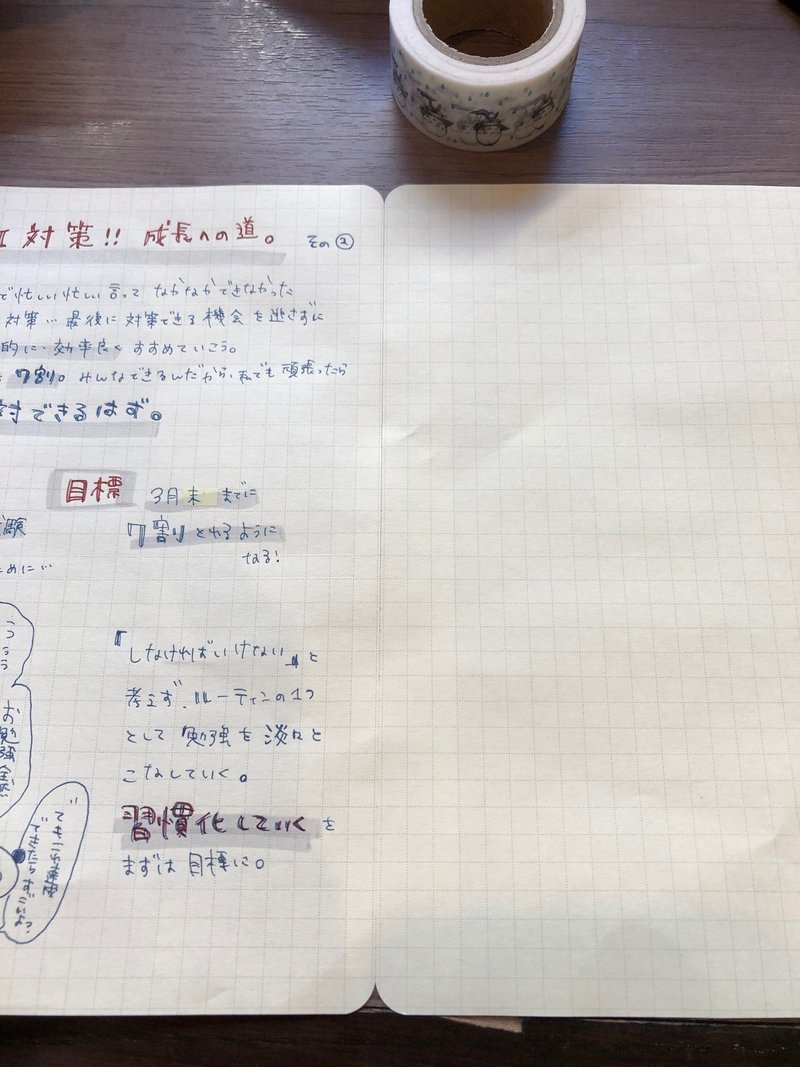 対策!! 成長への道。 その②
で忙しい忙しい言って なかなかできなかった
対策… 最後に 対策できる 機会 を 逃さずに
的に… 効率良く すすめていこう。
7割。 みんなできるんだから、私でも 頑張ったら
対できるはず。
目標 3月末 までに
7割 とれるように
なる!
験
ために…
『しなければいけない』と
考えず、ルーティンの1つ
として 勉強を 淡々と
こなしていく。
習慣化していく を
まずは 目標に。
お勉強
でも
できたらすごいよ?